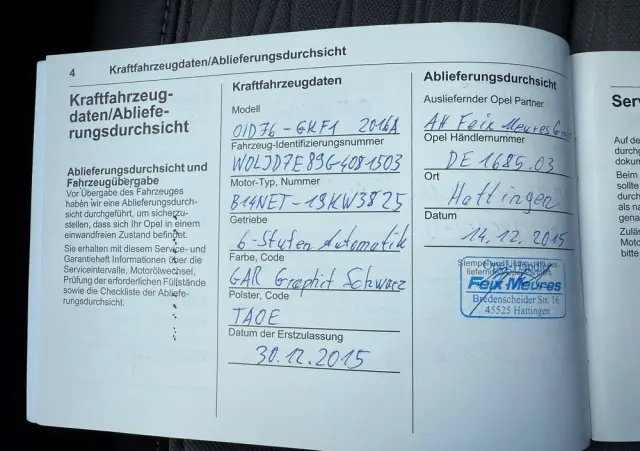 4 Kraftfahrzeugdaten/Ablieferungsdurchsicht
Kraftfahrzeug-
daten/Abliefe-
rungsdurchsicht
Ablieferungsdurchsicht und
Fahrzeugübergabe
Vor Übergabe des Fahrzeuges
haben wir eine Ablieferungsdurch-
sicht durchgeführt, um sicherzu-
stellen, dass sich Ihr Opel in einem
einwandfreien Zustand befindet.
Sie erhalten mit diesem Service- und
Garantieheft Informationen über die
Serviceintervalle, Motorölwechsel,
Prüfung der erforderlichen Füllstände
sowie die Checkliste der Abliefe-
rungsdurchsicht.
Kraftfahrzeugdaten
Modell
0ID76-GKF1 2016A
Fahrzeug-Identifizierungsnummer
W0LJD7E89G4081503
Motor-Typ, Nummer
B14NET-19KW3825
Getriebe
6-Stufen Automatik
Farbe, Code
GAR Graphit Schwarz
Polster, Code
TAOE
Datum der Erstzulassung
30.12.2015
Ablieferungsdurchsicht
Ausliefernder Opel Partner
AH Feix Meures
Opel Händlernummer
DE 1685.03
Ort
Hattingen
Datum
14.12.2015
Stempel und Unterschrift des
Feix Meures
Bredenscheider Str. 16
45525 Hattingen
Ser
Auf de
durchg
dokum
Beim
sollte
durch
als na
gena
Zuläs
Moto
bitte